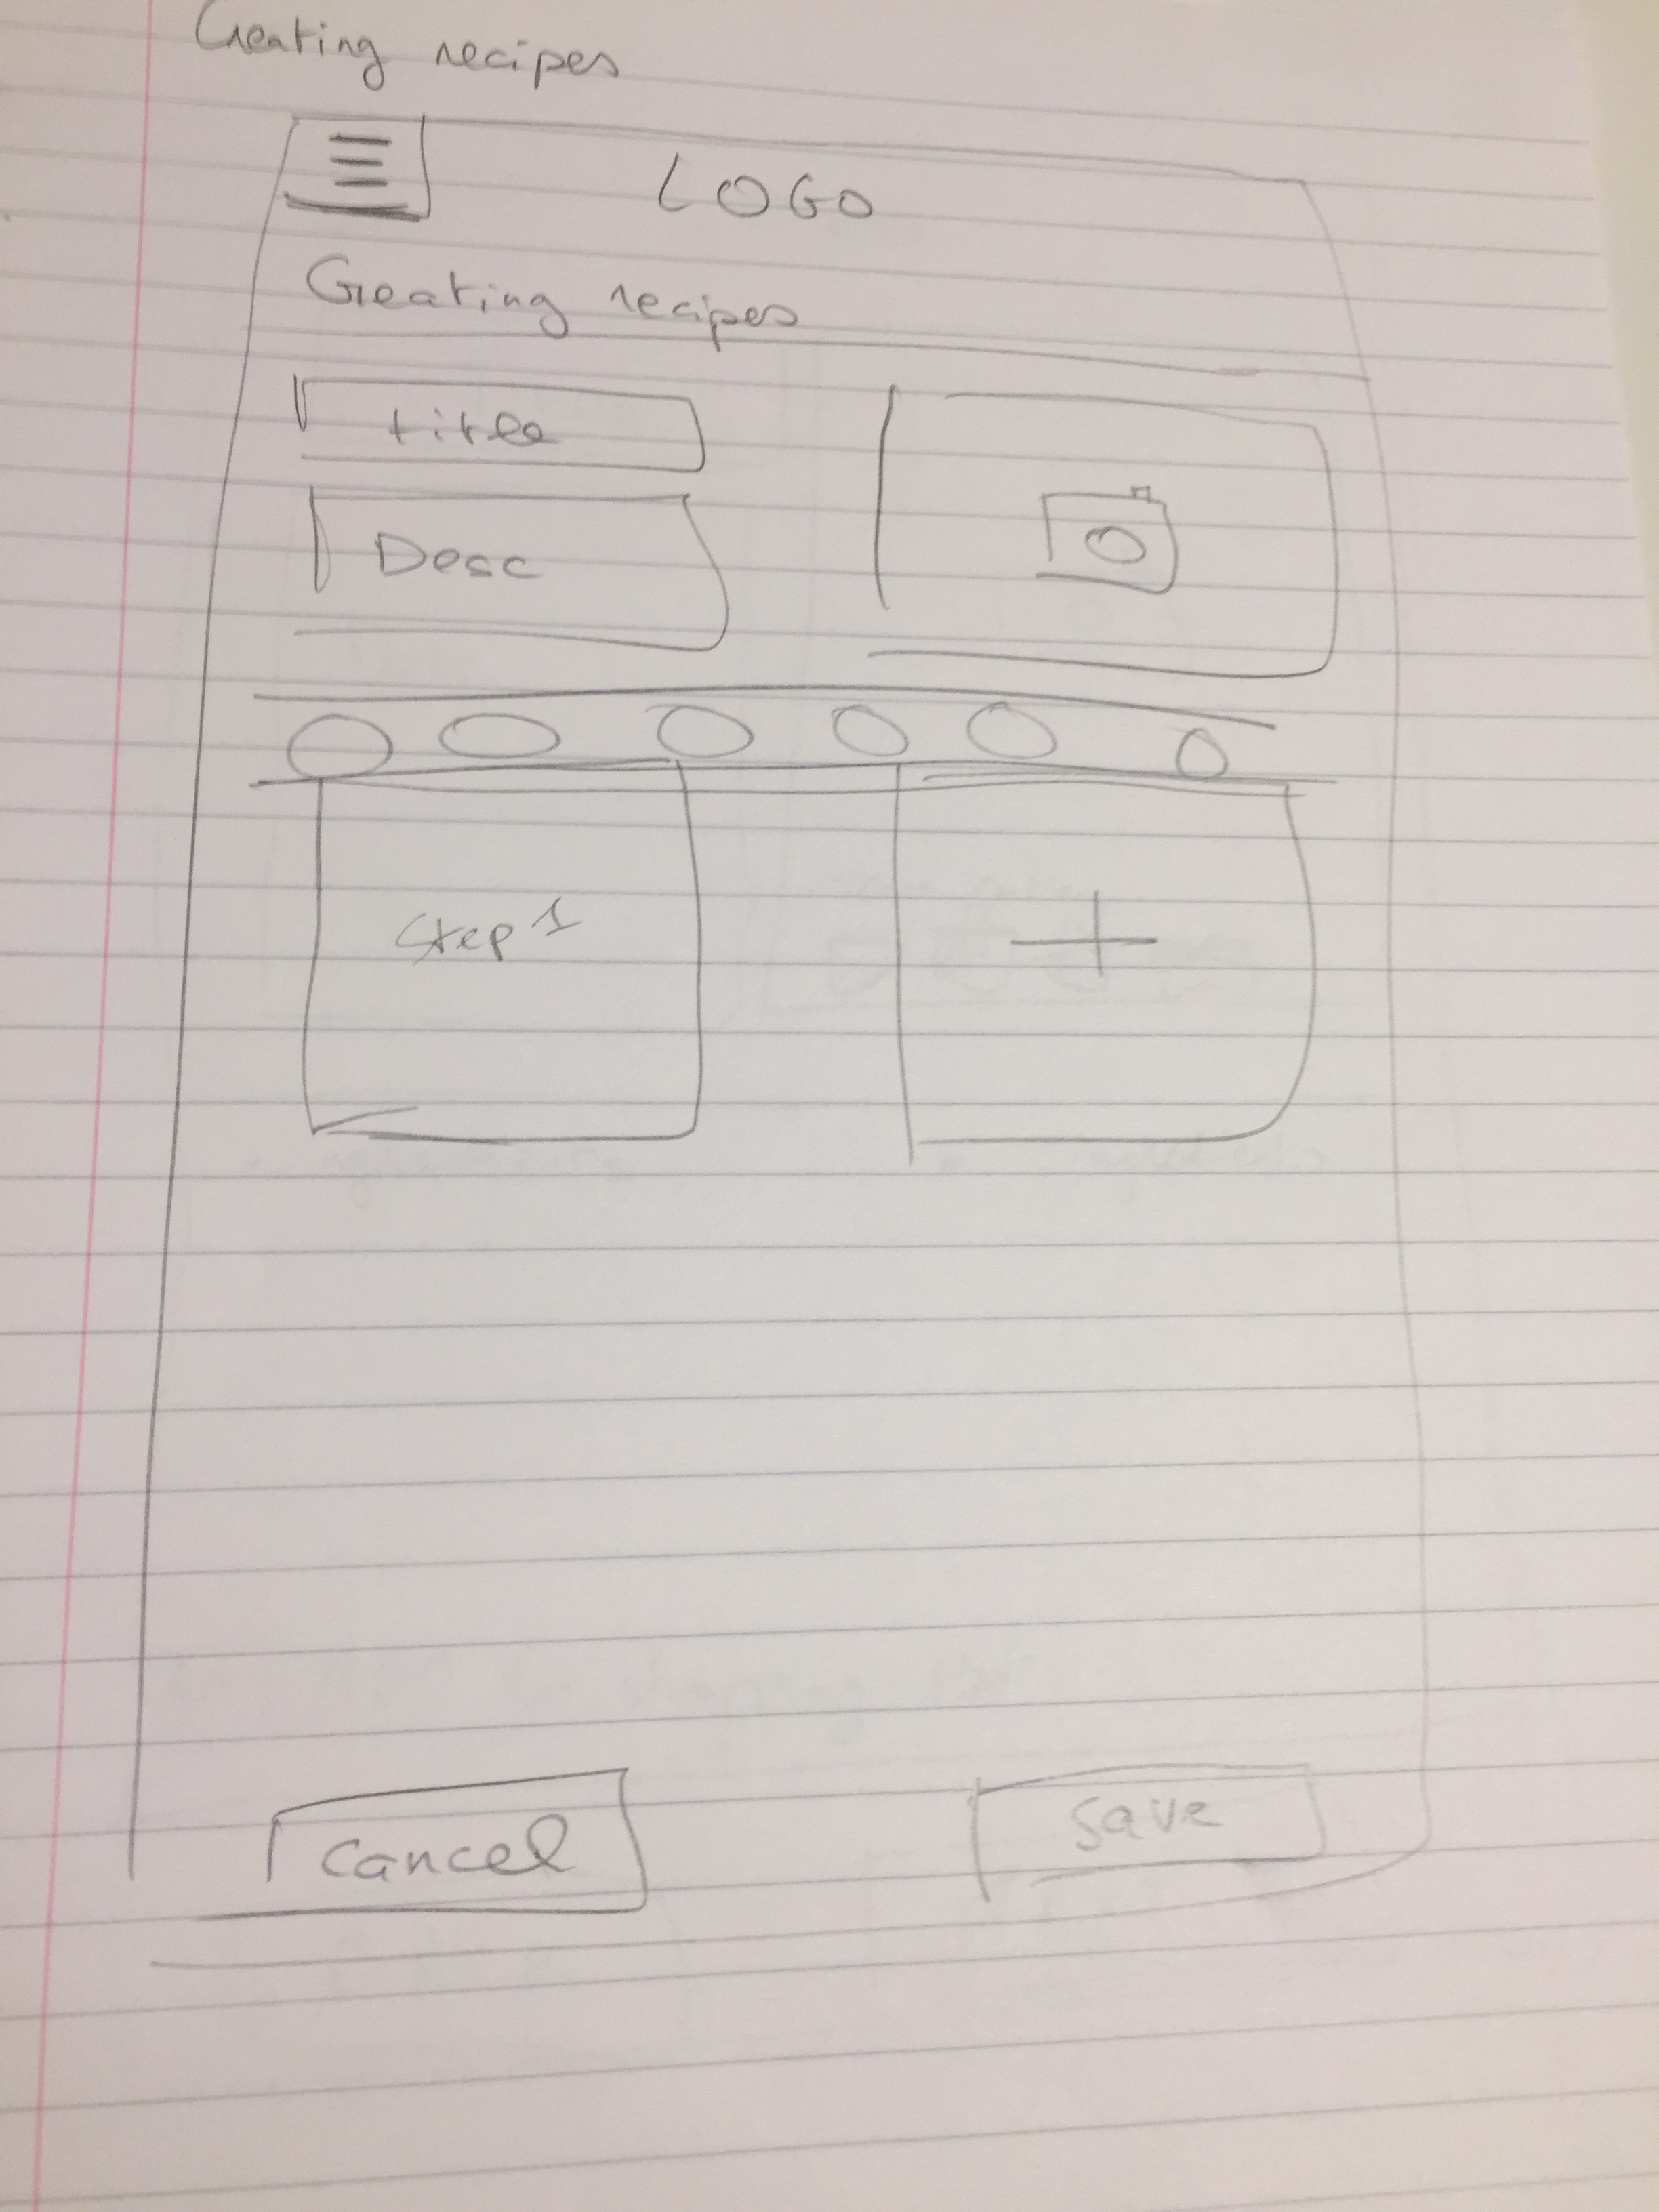 Creating recipes
LOGO
Creating recipes
title
Desc
Step 1
+
Cancel
Save